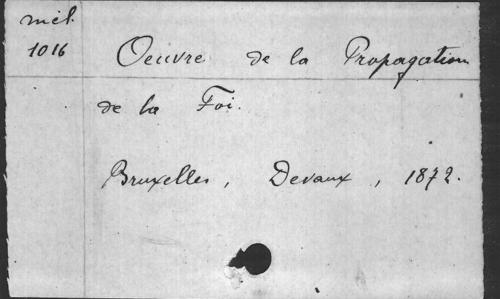 mél.
1016
Oeuvre de la Propagation
de la Foi.
Bruxelles, Devaux, 1872.